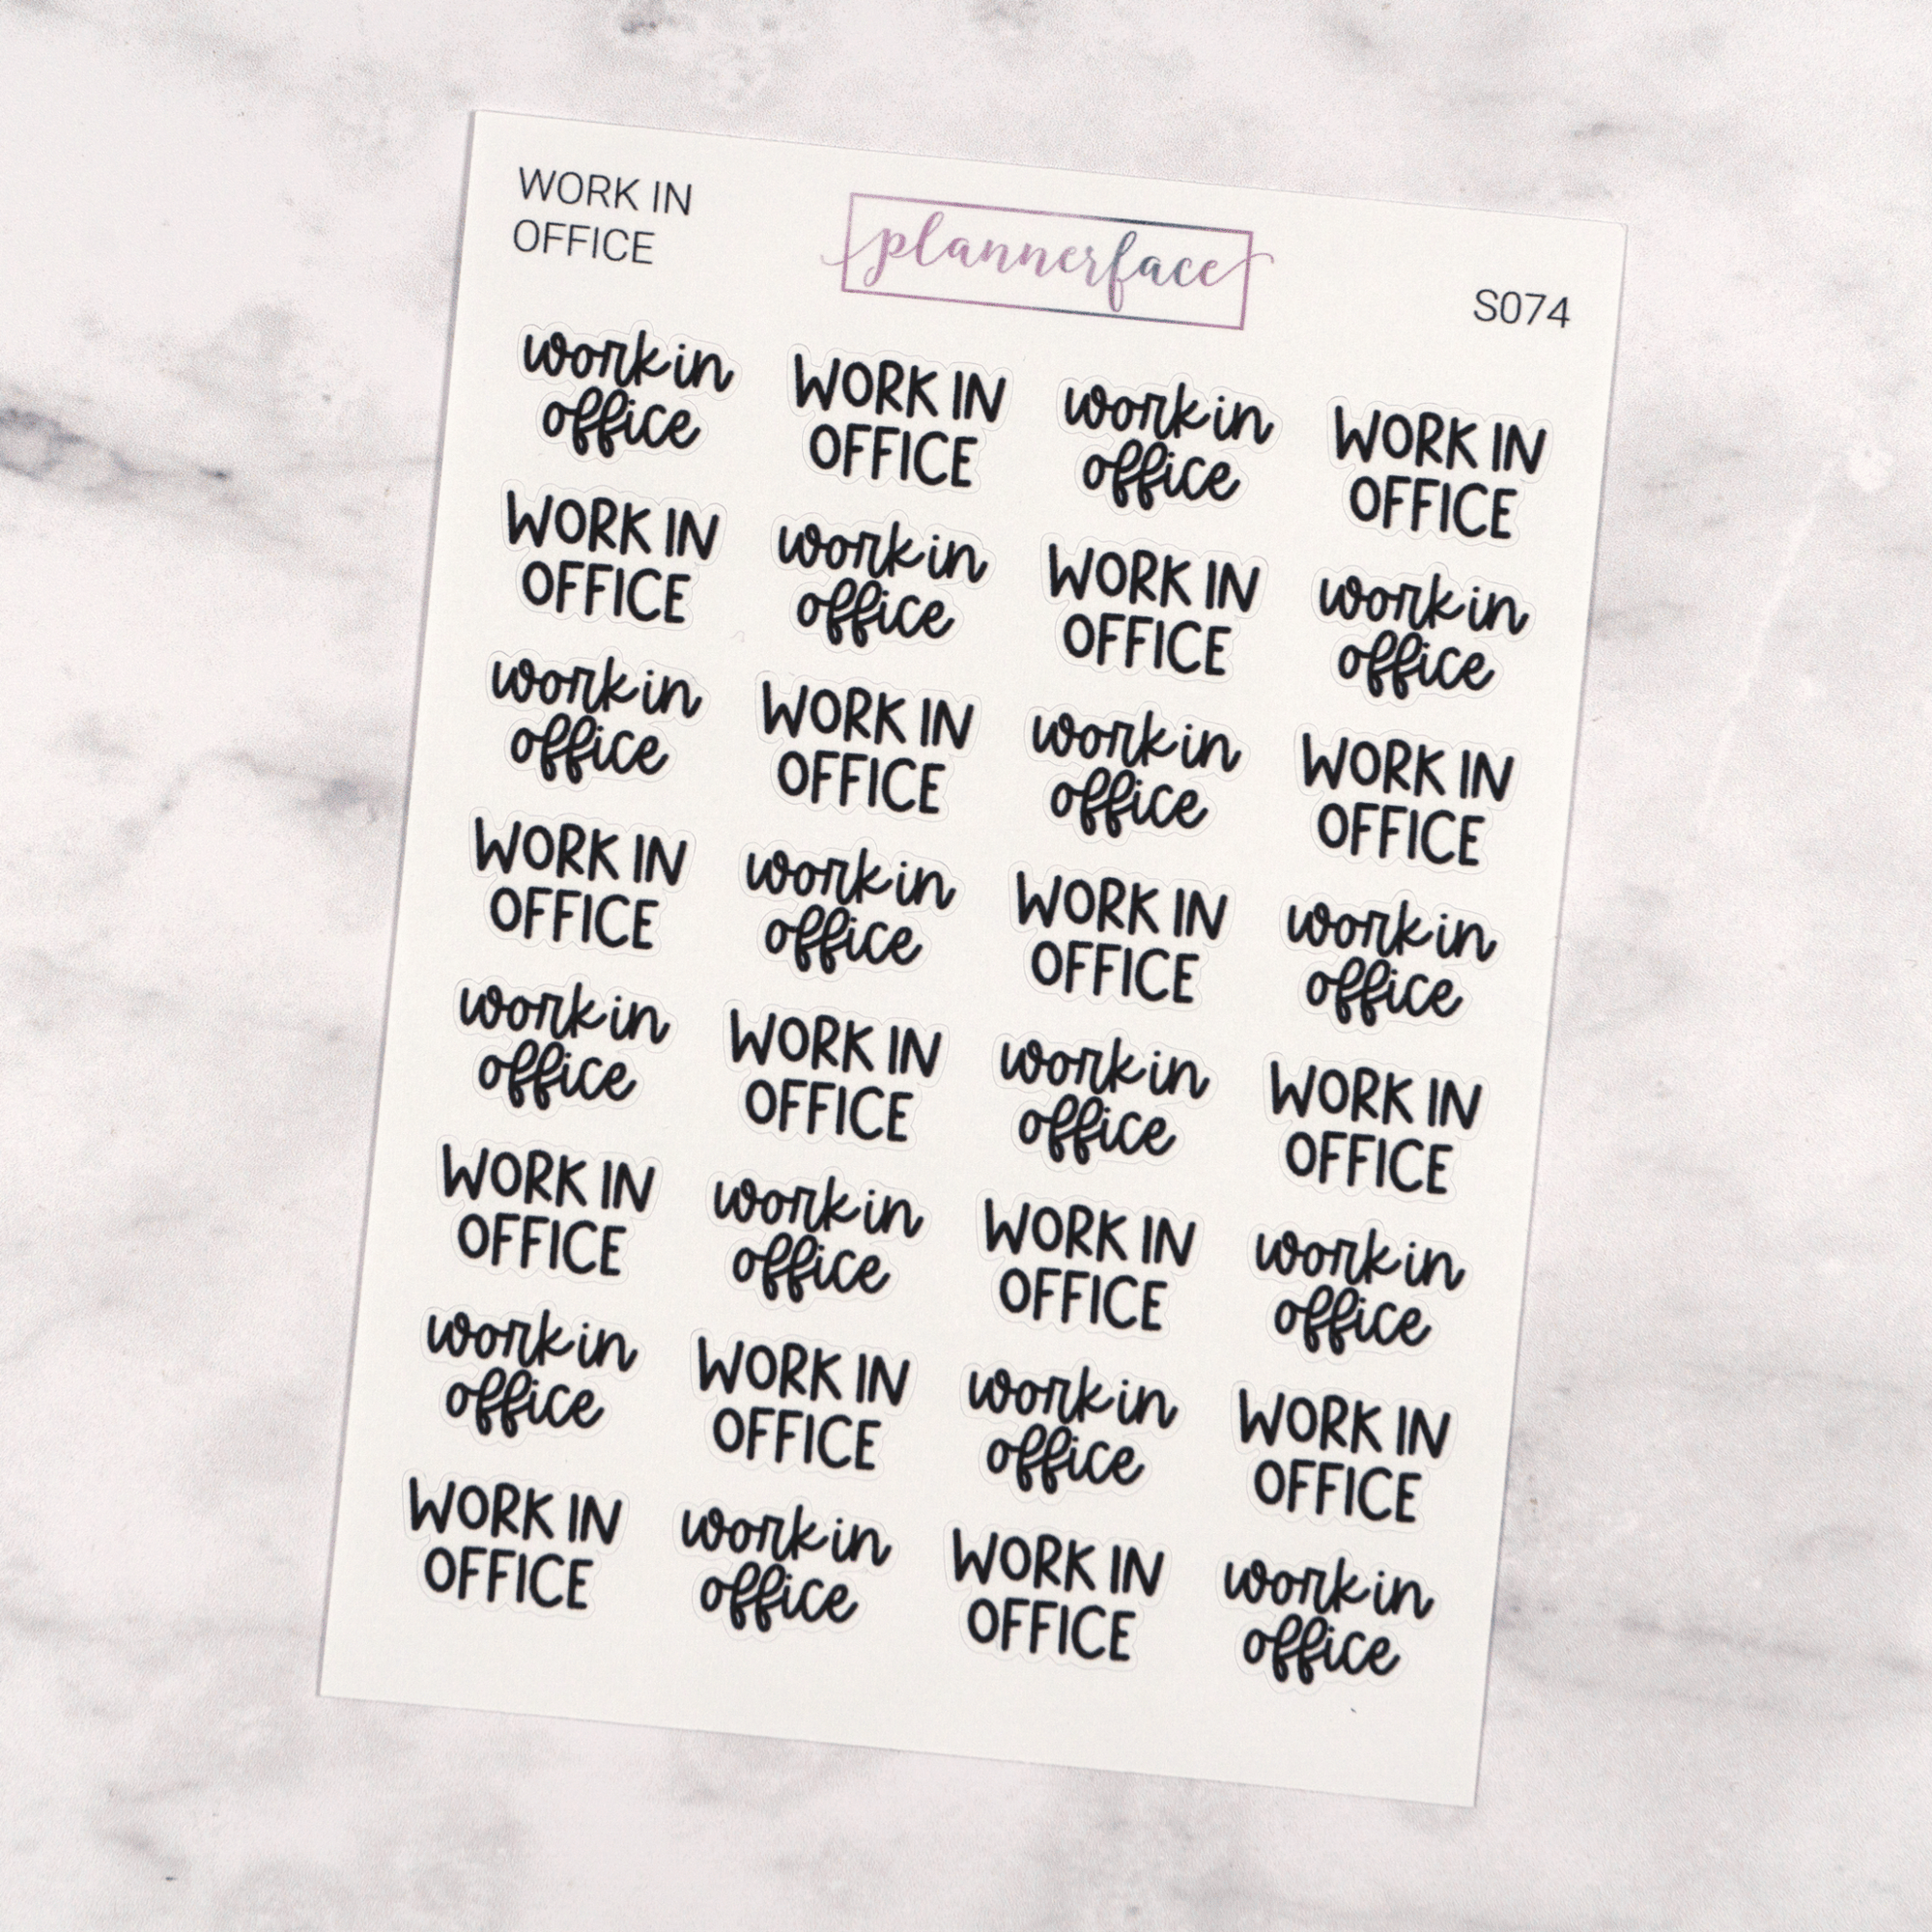 WORK IN
OFFICE
plannerface
S074
work in
office
WORK IN
OFFICE
work in
office
WORK IN
OFFICE
WORK IN
OFFICE
work in
office
WORK IN
OFFICE
work in
office
work in
office
WORK IN
OFFICE
work in
office
WORK IN
OFFICE
WORK IN
OFFICE
work in
office
WORK IN
OFFICE
work in
office
work in
office
WORK IN
OFFICE
work in
office
WORK IN
OFFICE
WORK IN
OFFICE
work in
office
WORK IN
OFFICE
work in
office
work in
office
WORK IN
OFFICE
work in
office
WORK IN
OFFICE
WORK IN
OFFICE
work in
office
WORK IN
OFFICE
work in
office